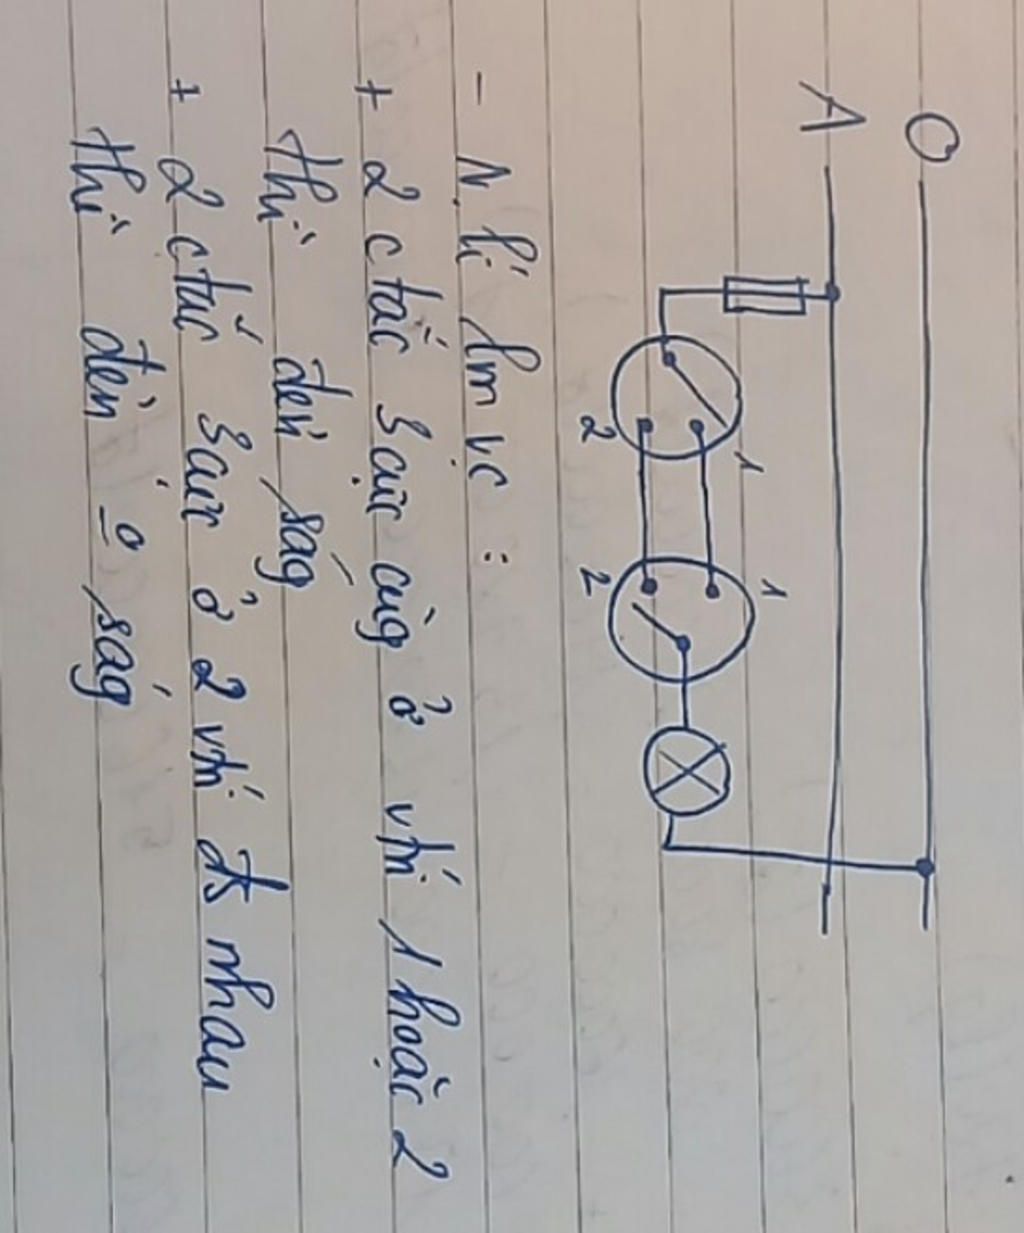 O
A
1 1
2 2
- N. lí lm vc :
+ 2 ctắc 3 cực cùg ở vtrí 1 hoặc 2
thì đèn ság
+ 2 ctắc 3 cực ở 2 vtrí đ nhau
thì đèn o ság